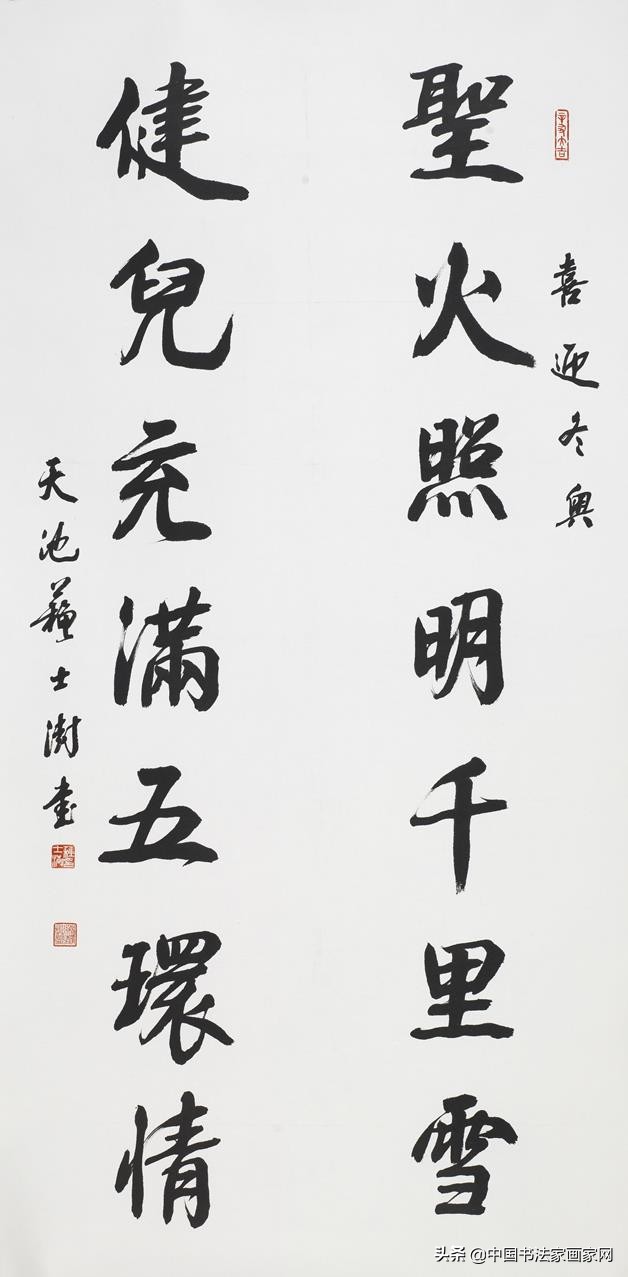 喜迎冬奧
聖火照明千里雪
健兒充滿五環情
天池蘇士澍書
头条 @中国书法家画家网